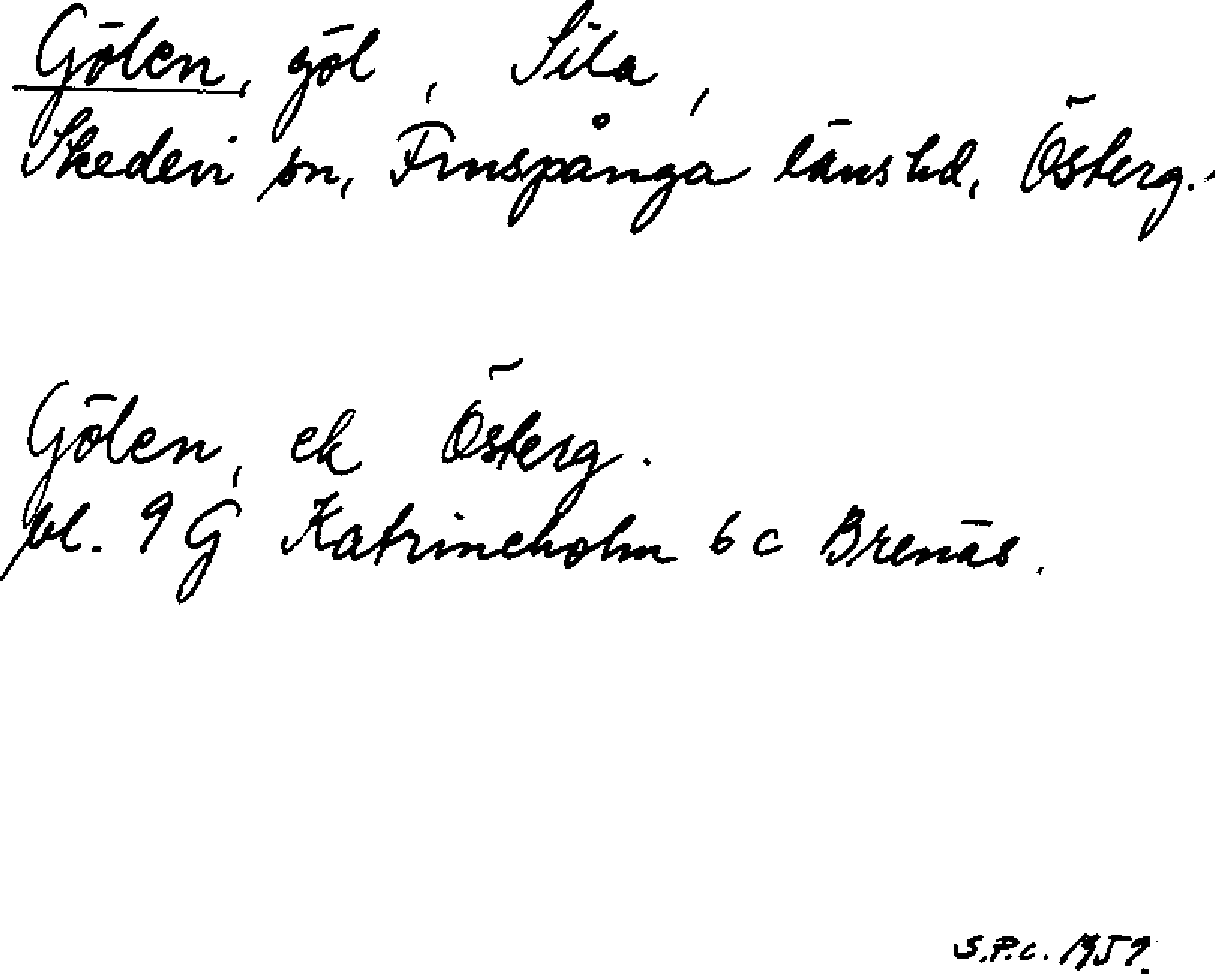 Gölen, göl, Sila,
Skedevi sn, Finspånga läns hd, Österg.
Gölen, ek Österg.
bl. 9 G Katrineholm 6 c Brenäs.
S.P.C. 1959.